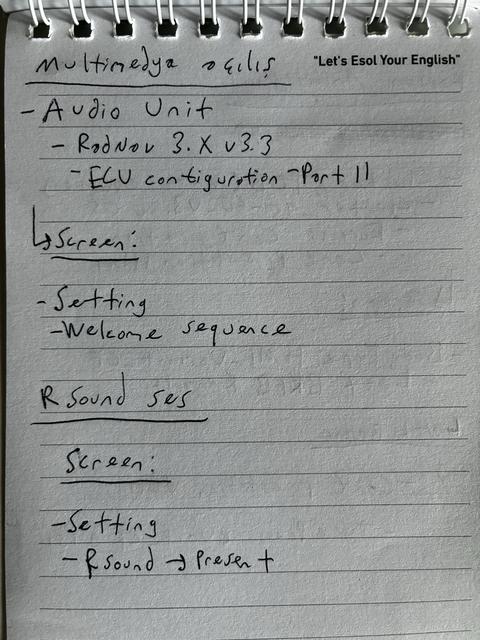 "Let's Esol Your English"
Multimedya açılış
- Audio Unit
- RadNav 3.X v3.3
- ECU configuration - Part II
↳ Screen:
- Setting
- Welcome sequence
R Sound ses
Screen:
- Setting
- R Sound → Present